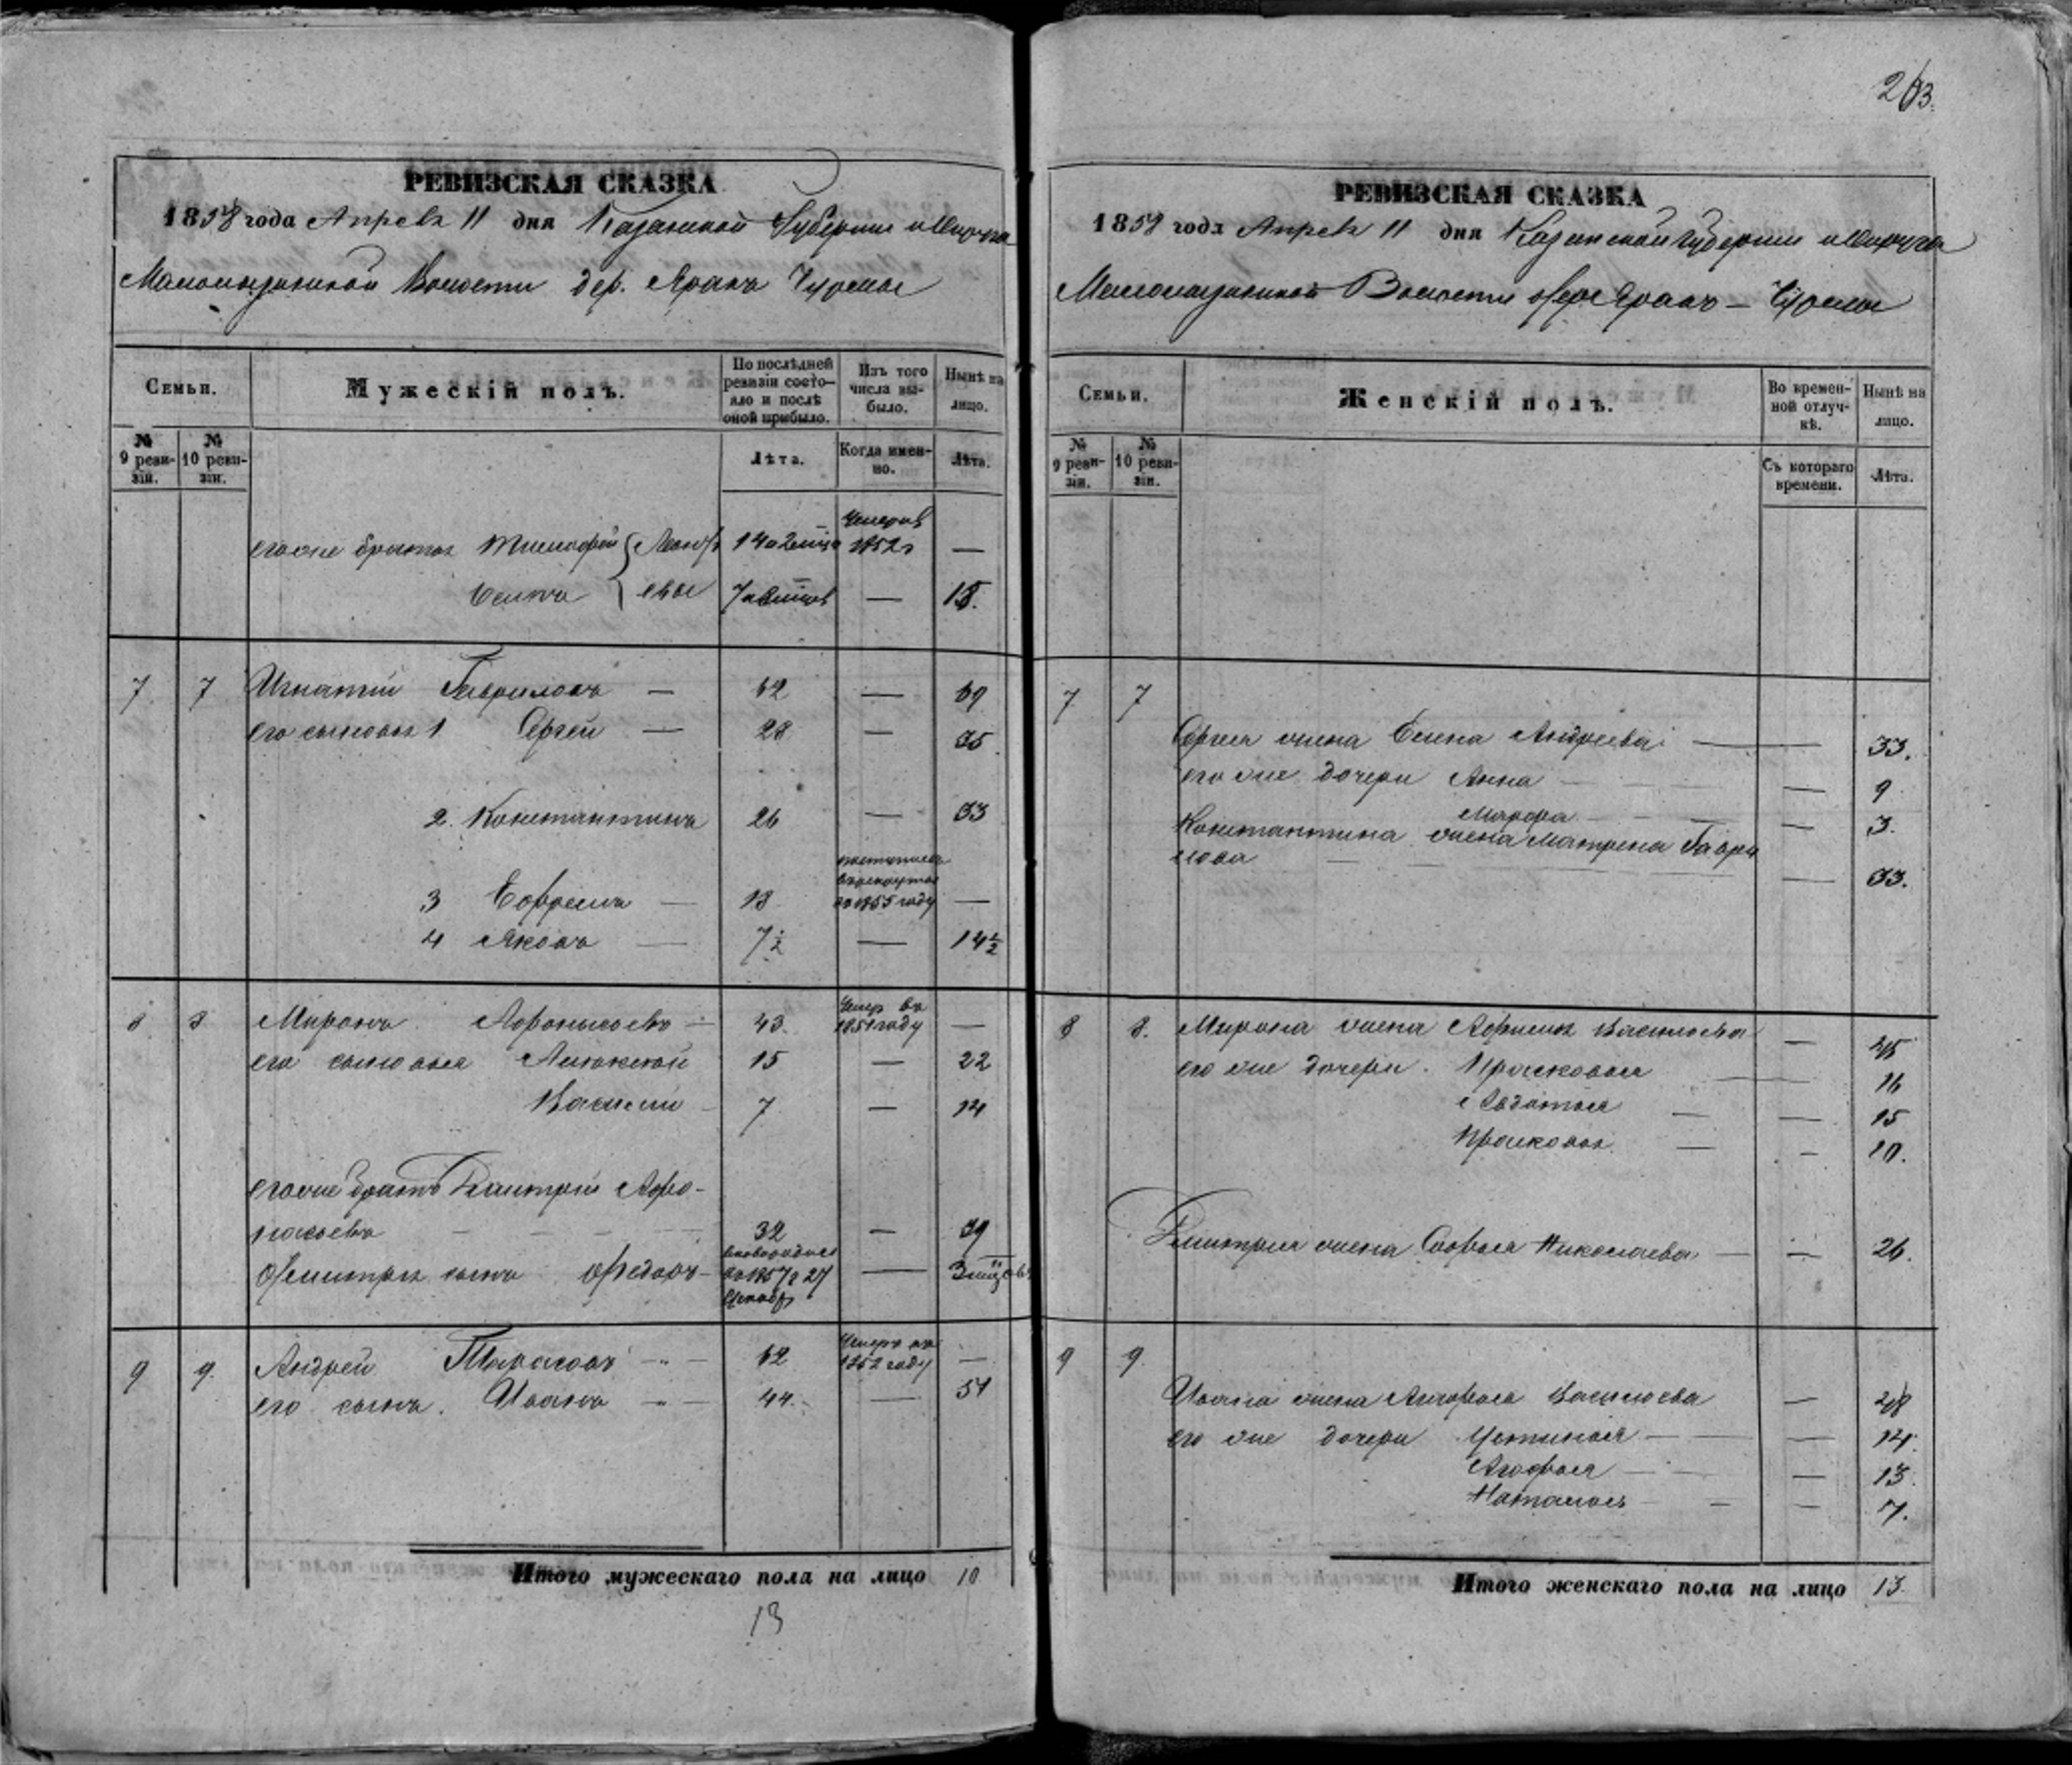 РЕВИЗСКАЯ СКАЗКА
1858 года Апреля 11 дня Казанской Губернии и Округа
Волости дер. Аранъ Чурмы
Семьи.
Мужескій полъ.
По послѣдней ревизіи состояло и послѣ оной прибыло.
Изъ того числа выбыло.
Нынѣ на лицо.
№ 9 ревизіи.
№ 10 ревизіи.
Лѣта.
Когда именно.
Лѣта.
его же братья Тимофей 14 1852 —
Осипъ 7 — 15.
7 7 Игнатій Гавриловъ — 62 — 69
его сыновья 1 Сергей — 28 — 35
2. Константинъ 26 — 33
3 Ефремъ — 18 въ рекруты въ 1855 году —
4 Яковъ — 7½ — 14½
8 8 Миронъ Афонасьевъ — 43. Умеръ въ 1851 году —
его сыновья Алексей 15 — 22
Василий 7 — 14
его же братъ Дмитрий Афонасьевъ 32 — 39
Дмитрия сынъ Федоръ — въ 1857 г 27 — 3
9 9. Андрей Тарасовъ — 62 Умеръ въ 1852 году —
его сынъ. Иванъ — 44. — 51
Итого мужескаго пола на лицо 10
13
263.
РЕВИЗСКАЯ СКАЗКА
1858 года Апреля 11 дня Казанской Губернии и Округа
Волости дер Аранъ — Чурмы
Семьи.
Женскій полъ.
Во временной отлучкѣ.
Нынѣ на лицо.
№ 9 ревизіи.
№ 10 ревизіи.
Съ котораго времени.
Лѣта.
7 7
Сергея жена Елена Андреева — 33.
его же дочери Анна — 9
Марфа — 3.
Константина жена Матрена Гаврилова — 33.
8 8. Мирона жена Васильева — 45
его же дочери. Прасковья — 16
Авдотья — 15
Прасковья — 10.
Дмитрия жена Софья Николаева — 26.
9 9
Ивана жена Васильева — 48
его же дочери Устинья — 14.
Агафья — 13
Наталья — 7.
Итого женскаго пола на лицо 13